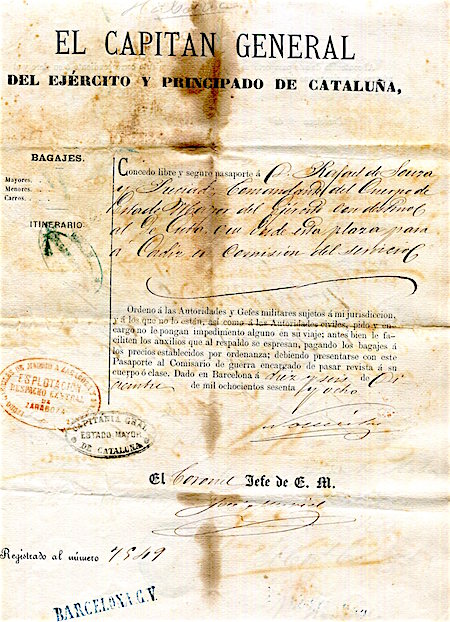 EL CAPITAN GENERAL
DEL EJÉRCITO Y PRINCIPADO DE CATALUÑA,
BAGAJES.
Mayores.
Menores.
Carros.
ITINERARIO.
Concedo libre y seguro pasaporte á D. Rafael de Souza
y Comandante del Cuerpo de
Estado Mayor del Ejército con destino
al de Cuba, que desde esta plaza pasa
á Cadiz en comision del servicio
Ordeno á las Autoridades y Gefes militares sujetos á mi jurisdiccion,
y á los que no lo están, así como á las Autoridades civiles, pido y en-
cargo no le pongan impedimento alguno en su viaje; antes bien le fa-
ciliten los auxilios que al respaldo se espresan, pagando los bagajes á
los precios establecidos por ordenanza; debiendo presentarse con este
Pasaporte al Comisario de guerra encargado de pasar revista á su
cuerpo ó clase. Dado en Barcelona á diez y seis de Di
ciembre de mil ochocientos sesenta y ocho
ESPLOTACION
DESPACHO CENTRAL
DE
ZARAGOZA
CAPITANIA GRAL
ESTADO MAYOR
DE CATALUÑA
El Coronel Jefe de E. M.
Registrado al número 7549
BARCELONA G.V.